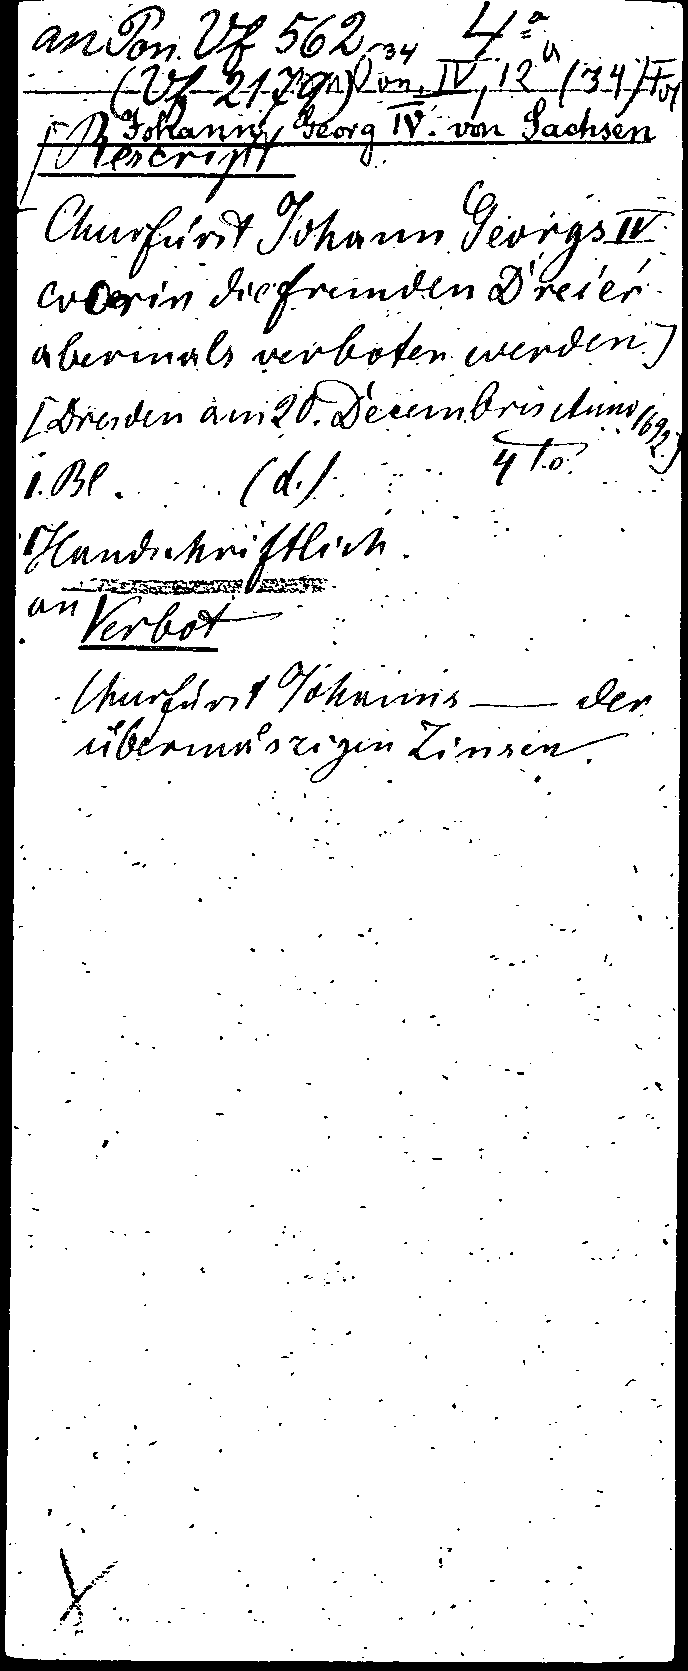 an Pon. Vf 562 34 4°
(Vf 2179) Pon. IV, 12 a (34) Fol
Johann, Georg IV. von Sachsen
[Rescript
Churfürst Johann Georgs IV
worin die fremden Dreier
abermals verboten werden]
[Dresden am 20. Decembris Anno 1692.]
1. Bl. (d.) 4to.
Handschriftlich.
an Verbot
Churfürst Johanns — der
übermäszigen Zinsen.